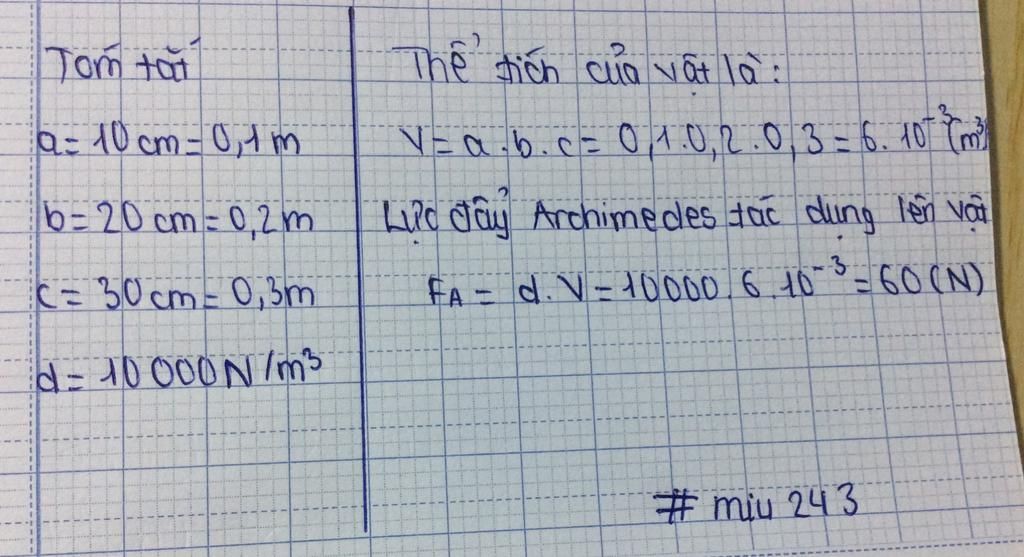 Tóm tắt
a = 10 cm = 0,1 m
b = 20 cm = 0,2 m
c = 30 cm = 0,3 m
d = 10 000 N/m³
Thể tích của vật là:
V = a.b.c = 0,1.0,2.0,3 = 6.10⁻³ (m³)
Lực đẩy Archimedes tác dụng lên vật
FA = d.V = 10000.6.10⁻³ = 60 (N)
# miu 243